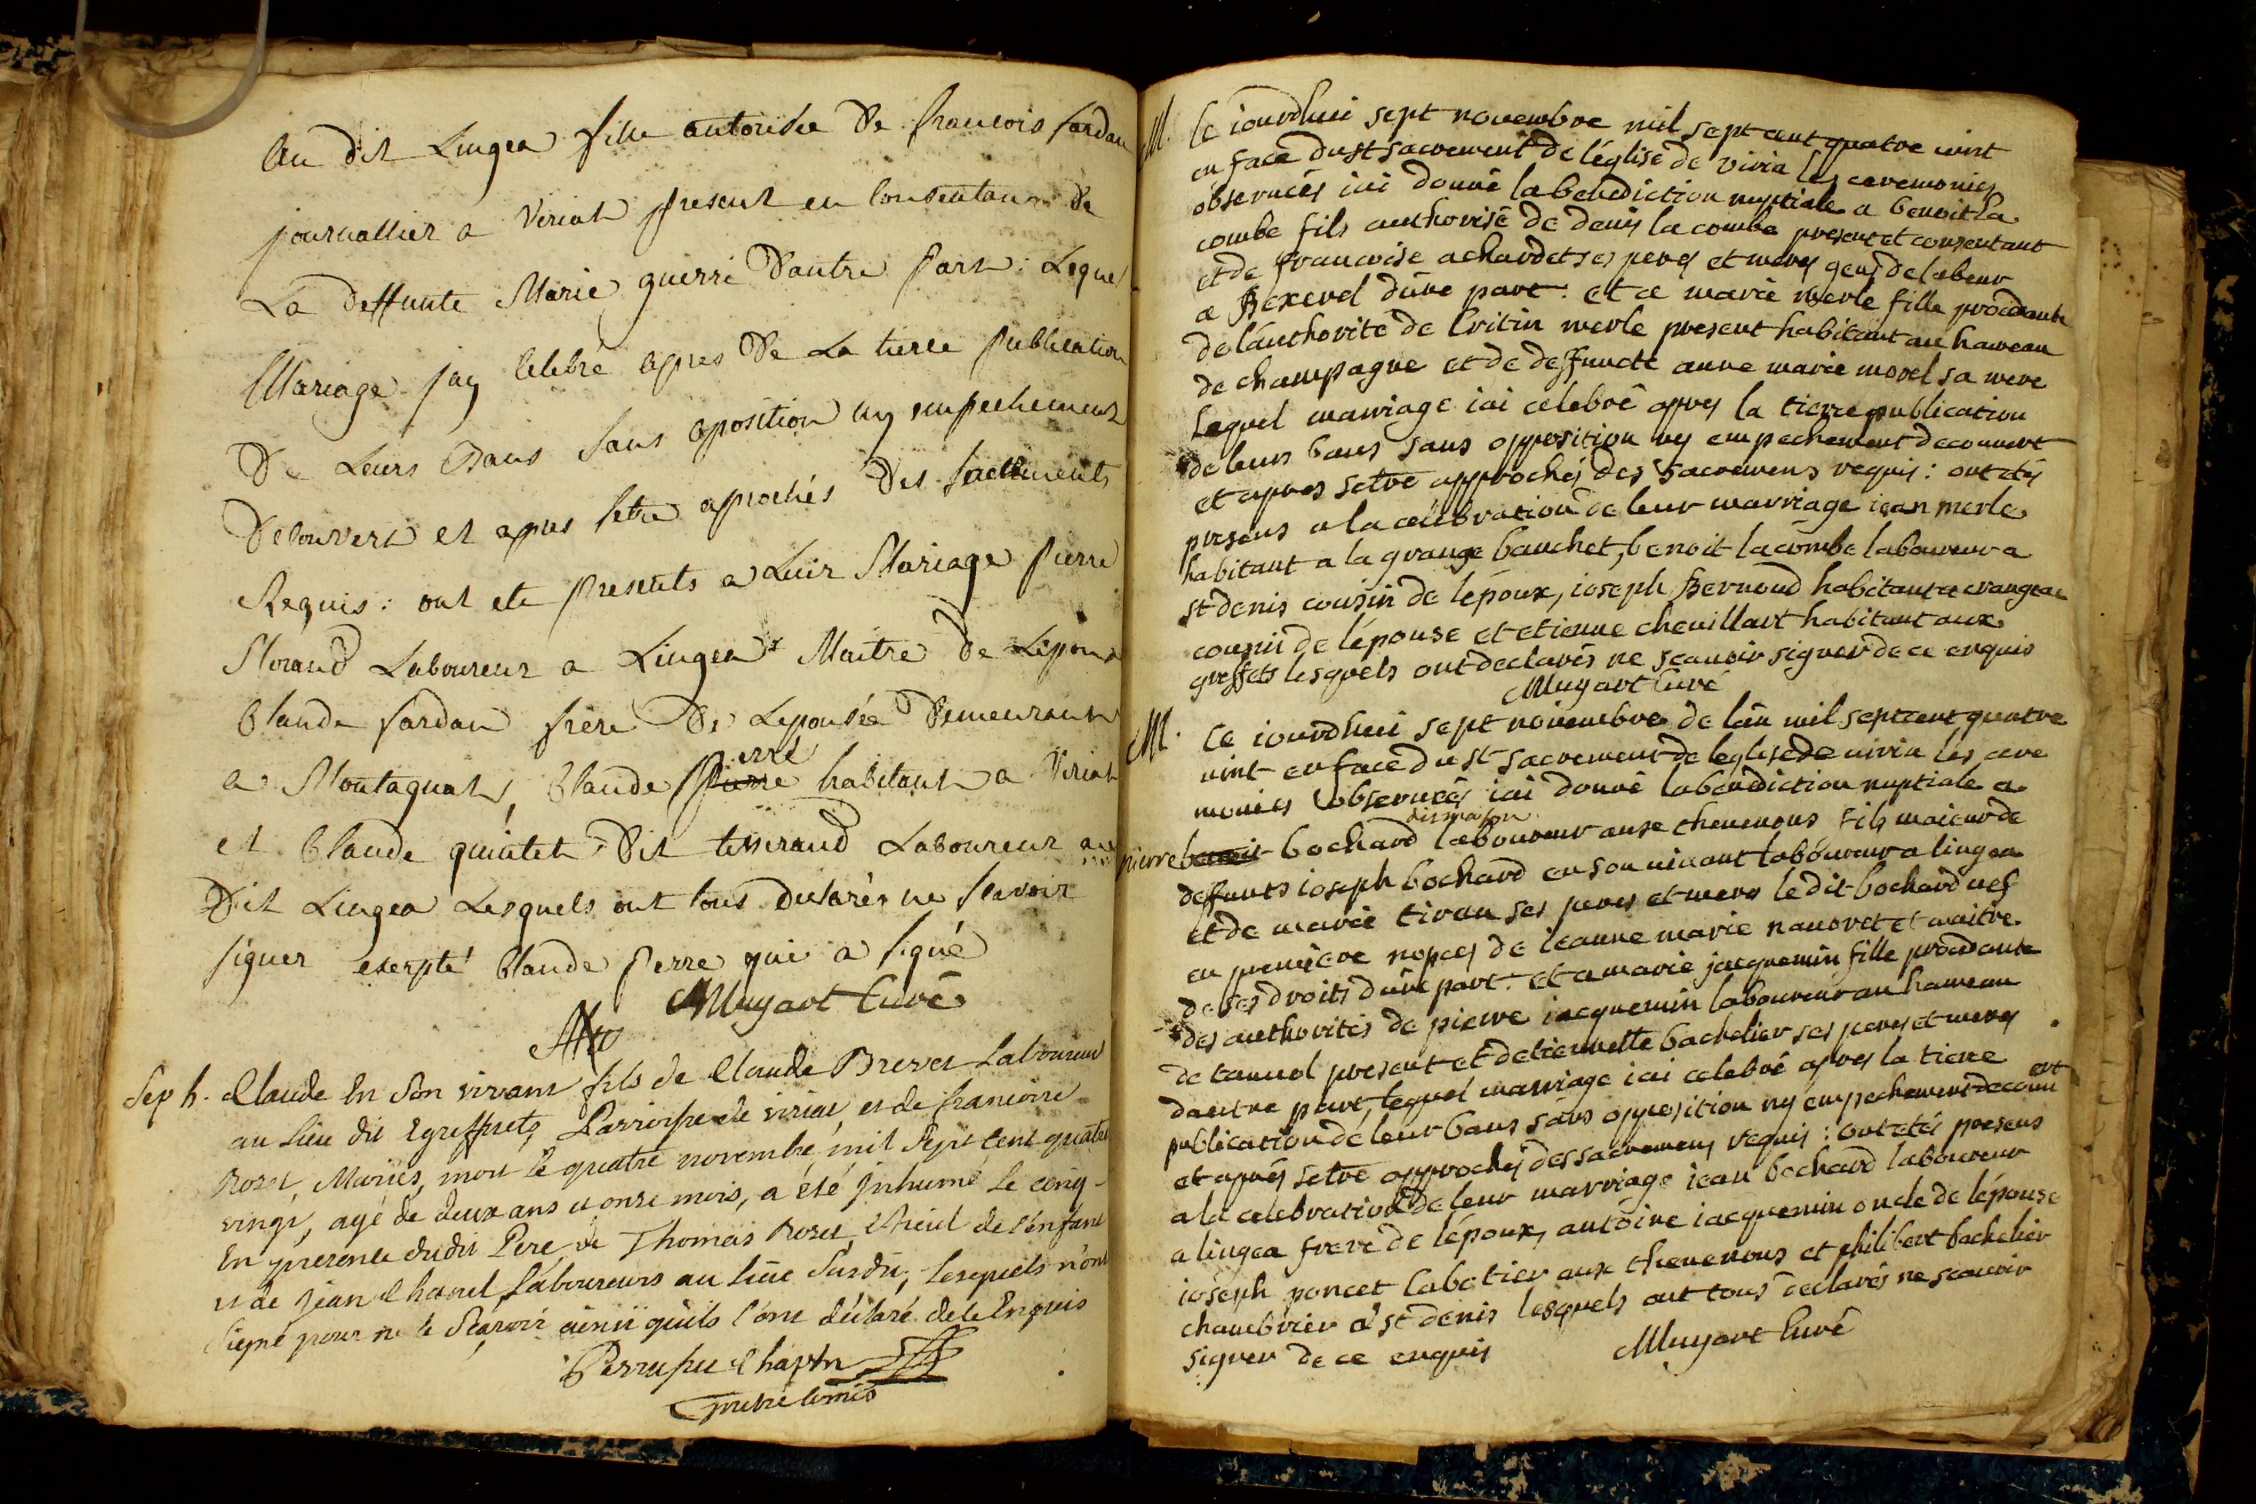 Au dit Lingea fille autorisée De francois fardan
journallier a Viriat present en Consentant De
La Deffunte Marie guerri Dautre part: Lequel
Mariage jay Celebré apres De La tierce publication
De Leurs Bans sans oposition ny empechement
Decouvert et apres setre aprochés Des sacrements
Requis: ont ete presents a Leur Mariage pierre
Morand Laboureur a Lingea Maitre De Lepoux
Claude fardan frere De Lepousée Demeurant
erre
a Montagnat, Claude habitant a Viriat
et Claude quintet Dit tisserand Laboureur au
Dit Lingea Lesquels ont tous declarés ne scavoir
signer excepté Claude perre qui a signé
Muyart Curé
Sep h. Claude En son vivant fils de Claude Brevet Laboureur
au lieu dit Egreffets, Parroisse de viriat, et de francoise
Rozet, Mariés, mort le quatre novembre mil sept cent quatre
vingt, agé de deux ans et onze mois, a été inhumé le cinq
En presence dudit Pere, de Thomas Rozet, Ayeul de l'enfant
et de Jean Chanel, Laboureurs au lieu susdit, lesquels n'ont
signé pour ne le scavoir ainsi qu'ils l'ont déclaré de ce Enquis
prêtre comis
M. Ce iourdhui sept novembre mil sept cent quatre vint
en face du st sacrement de léglise de viria les ceremonies
observées iai donné la benediction nuptiale a benoit la
combe fils authorisé de denis la combe present et consentant
et de francoise achardet ses peres et meres gens de labeur
a Bexerel dune part. et a marie merle fille procédante
de lauthorité de merle present habitant au hameau
de champagne et de deffuncte anne marie morel sa mere
Lequel marriage iai celebré apres la tierre publication
de leurs bans sans opposition ny empechement decouvert
et apres setre approchés des sacremens requis: ont étés
presens a la célébration de leur marriage iean merle
habitant a la grange bauchet, benoit lacombe laboureur a
st denis cousin de lépoux, ioseph Bernoud habitant a crangeac
cousin de lépouse et etienne chevillart habitant aux
greffets lesquels ont declarés ne scauoir signer de ce enquis
Muyart Curé
M. Ce iourdhui sept novembre de lan mil sept cent quatre
vint en face du st sacrement de leglise de viria les cere
monies observées iai donné la benediction nuptiale a
pierre bochard laboureur aux thevenons fils maieur de
deffunts ioseph bochard en son vivant laboureur a lingea
et de marie tiran ses peres et meres le dit bochard vef
en premiere nopces de ieanne marie nauoret et maitre
de ses droits dune part. et a marie jacquemin fille procédante
des authorités de pierre iacquemin laboureur au hameau
de tanvol present et detiennette bachelier ses peres et meres
dautre part, lequel marriage iai celebré apres la tierre
publication de leur bans sans opposition ny empechement decouu
ert
et aprés setre approchés des sacremens requis: ont étés presens
a la celebration de leur marriage iean bochard laboureur
a lingea frere de lépoux, antoine iacquemin oncle de lépouse
ioseph poncet sabotier aux thevenons et philibert bachelier
chambrier a st denis lesquels ont tous declarés ne scauoir
signer de ce enquis Muyart Curé